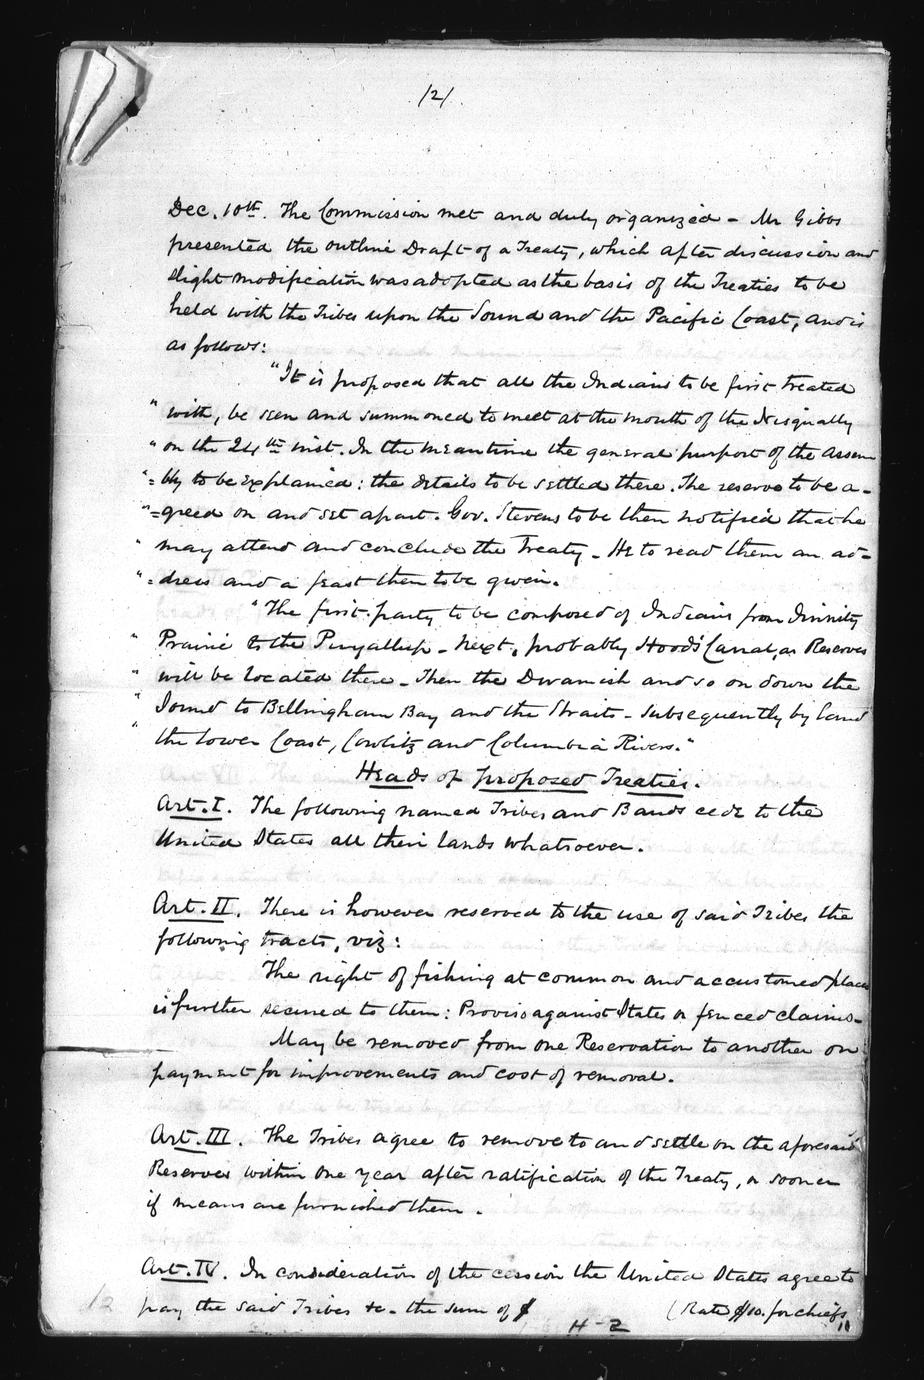 /2/.
Dec. 10th. The Commission met and duly organized - Mr Gibbs
presented the outline Draft of a Treaty, which after discussion and
slight modification was adopted as the basis of the Treaties to be
held with the Tribes upon the Sound and the Pacific Coast, and is
as follows:
"It is proposed that all the Indians to be first treated
" with, be seen and summoned to meet at the mouth of the Nisqually
" on the 24th inst. In the meantime the general purport of the assem
"=bly to be explained: the details to be settled there. The reserve to be a-
"=greed on and set apart. Gov. Stevens to be then notified that he
" may attend and conclude the Treaty - He to read them an ad=
"=dress and a feast then to be given.
"The first party to be composed of Indians from
" Prairie to the Puyallup - Next, probably Hood's Canal, as Reserves
" will be located there - Then the Dwamish and so on down the
" Sound to Bellingham Bay and the Straits - Subsequently by land
" the lower Coast, Cowlitz and Columbia Rivers."
Heads of proposed Treaties.
Art. I. The following named Tribes and Bands cede to the
United States all their lands whatsoever.
Art. II. There is however reserved to the use of said Tribes the
following tracts, viz:
The right of fishing at common and accustomed places
is further secured to them: Proviso against States or fenced claims-
May be removed from one Reservation to another on
payment for improvements and cost of removal.
Art. III. The Tribes agree to remove to and settle on the aforesaid
Reserves within one year after ratification of the Treaty, or sooner
if means are furnished them.
Art. IV. In consideration of the cession the United States agree to
pay the said Tribes &c - the sum of $ (Rate $10. for chiefs
12
H-2